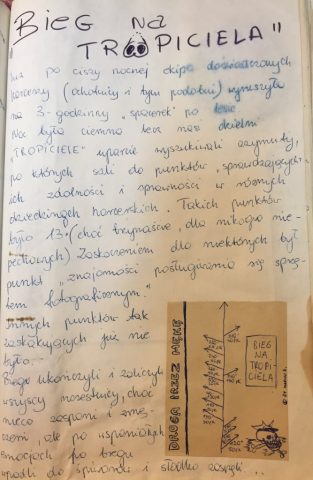 BIEG NA
TROPICIELA"
Już po ciszy nocnej ekipa doświadczonych
harcerzy (ochotnicy i tym podobni) wyruszyła
na 3-godzinny "spacerek" po lesie
Noc była ciemna lecz nasi dzielni
"TROPICIELE" uparcie wyszukiwali azymuty,
po których szli do punktów "sprawdzających"
ich zdolności i sprawności w różnych
dziedzinach harcerskich. Takich punktów
było 13. (choć trzynaście, dla nikogo nie
pechowych) Zaskoczeniem dla niektórych był
punkt "znajomości posługiwania się sprzę-
tem fotograficznym."
Innych punktów tak
zaskakujących już nie
było.-
Biegu ukończyli i zaliczyli
wszyscy uczestnicy, choć
nieco zaspani i zmę-
czeni, ale po wspaniałych
emocjach po biegu
wpadli do śpiworów i słodko zasnęli...
DROGA PRZEZ MĘKĘ
BIEG
NA
TROPI-
CIELA